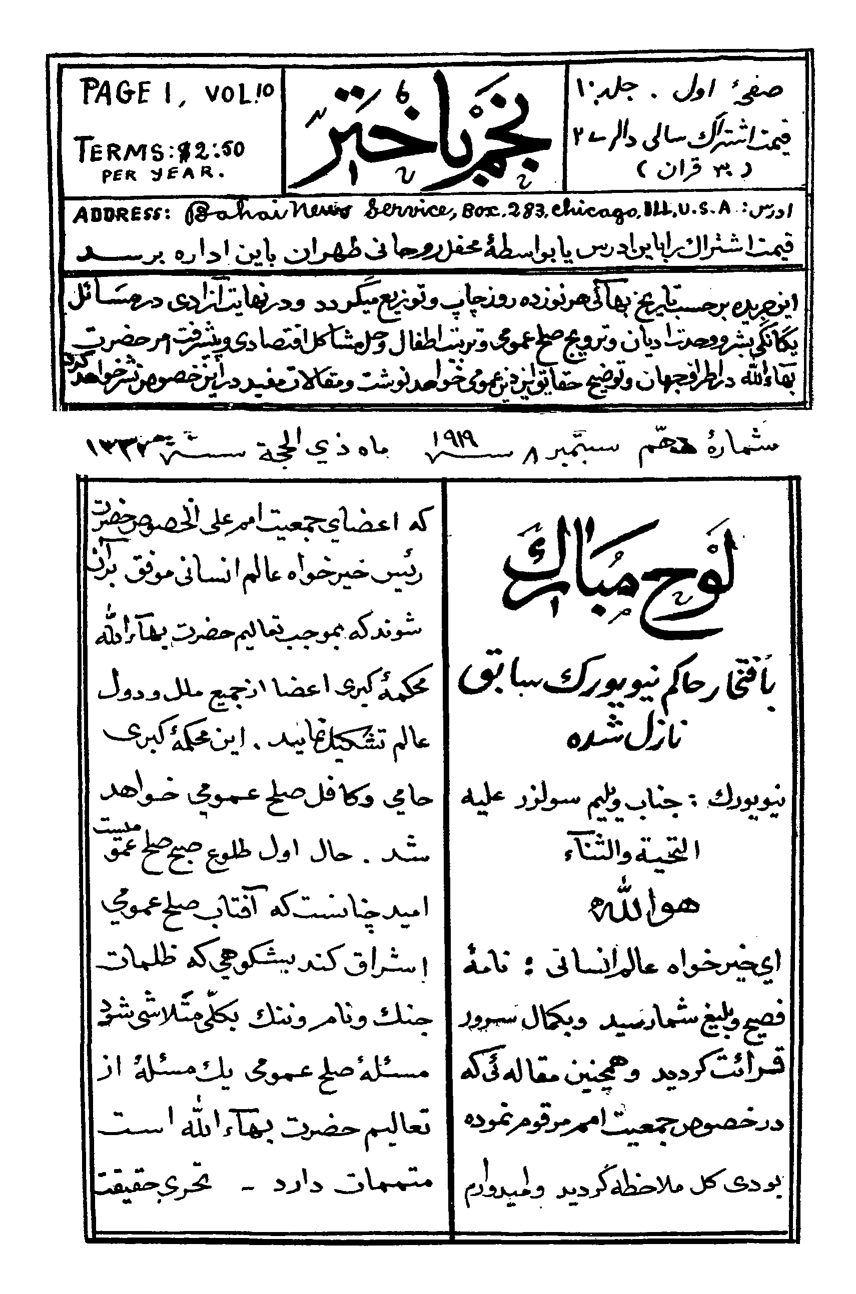 PAGE 1, VOL.10
TERMS: $2.50
PER YEAR.
نجم باختر
صفحهٔ اول . جلد ۱۰
قیمت اشتراک سالی دالر ۲
( ۳۰ قران )
ADDRESS: Bahai News Service, Box. 283, chicago, Ill, U.S.A. ادرس:
قیمت اشتراک را باین ادرس یا بواسطهٔ محفل روحانی طهران باین اداره برسد
این جریده برحسب تاریخ بهائی هر نوزده روز چاپ و توزیع میگردد و در نهایت آزادی در مسائل
یگانگی بشر و وحدت ادیان و ترویج صلح عمومی و تربیت اطفال و حل مشاکل اقتصادی و پیشرفت امر حضرت
بهاءالله در اطراف جهان و توضیح حقایق این دین عمومی خواهد نوشت و مقالات مفید در این خصوص نشر خواهد کرد
شمارهٔ دهم سبتمبر ۸ سنه ۱۹۱۹ ماه ذي الحجة سنه ۱۳۳۷
لوح مبارك
بافتخار حاکم نیویورك سابق
نازل شده
نیویورك : جناب ویلیم سولزر علیه
التحیة والثناء
هوالله
ای خیرخواه عالم انسانی : نامهٔ
فصیح و بلیغ شما رسید و بکمال سرور
قرائت گردید و همچنین مقاله ئی که
در خصوص جمعیت امم مرقوم نموده
بودی کل ملاحظه گردید و امیدوارم
که اعضای جمعیت امم علی الخصوص حضرت
رئیس خیرخواه عالم انسانی موفق بر آن
شوند که بموجب تعالیم حضرت بهآءالله
محکمهٔ کبری اعضا از جمیع ملل و دول
عالم تشکیل نمایند . این محکمهٔ کبری
حامی و کافل صلح عمومی خواهد
شد . حال اول طلوع صبح صلح عمومیست
امید چنانست که آفتاب صلح عمومی
اشراق کند بشکوهی که ظلمات
جنك و نام و ننك بکلّی متلاشی شود
مسئلهٔ صلح عمومی یك مسئلهٔ از
تعالیم حضرت بهآءالله است
متممات دارد - تحری حقیقت